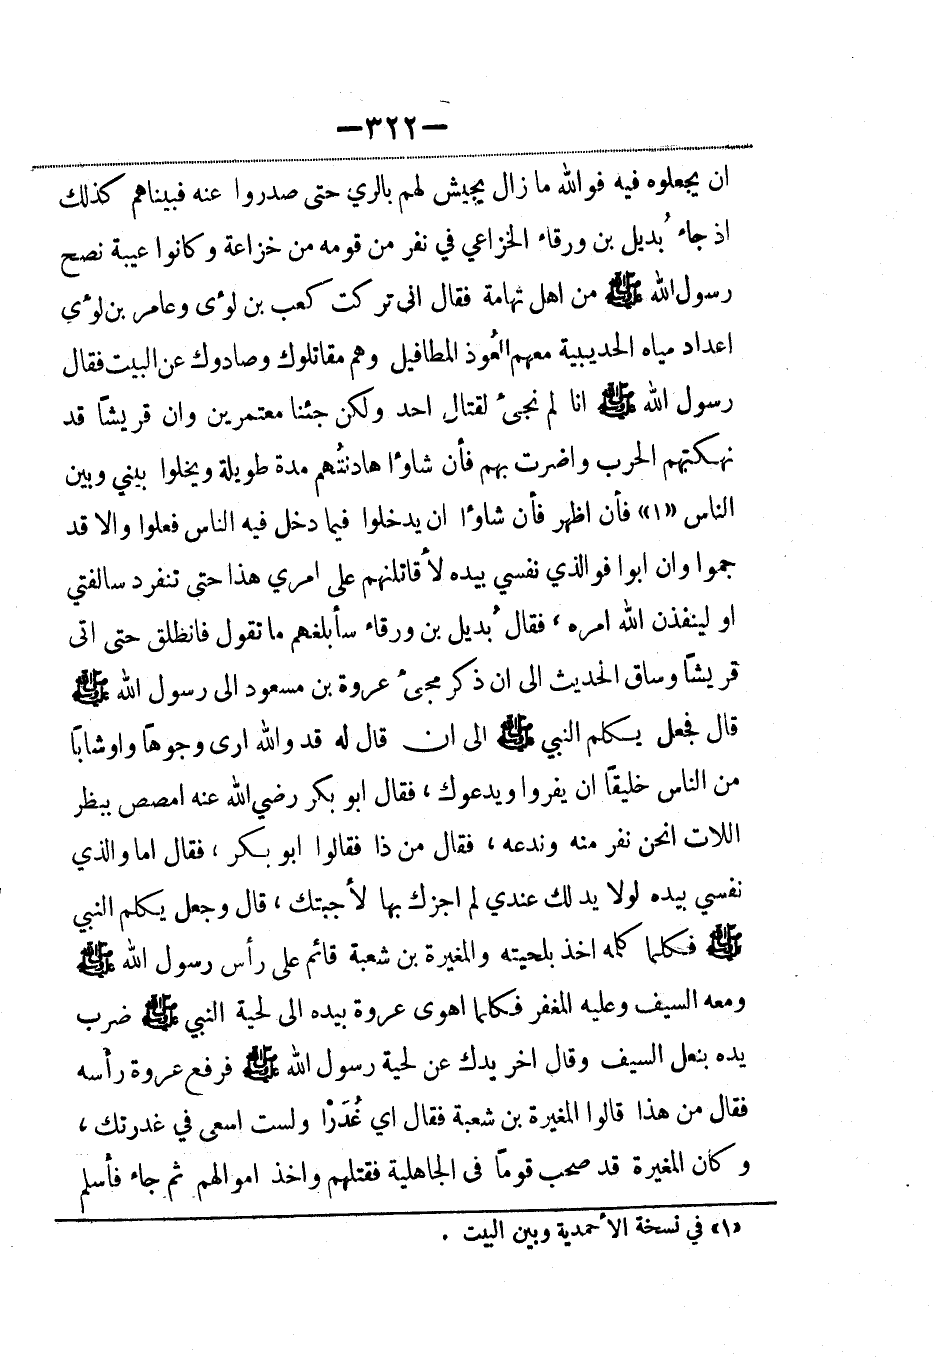 —٣٢٢—
ان يجعلوه فيه فوالله ما زال يجيش لهم بالري حتى صدروا عنه فبيناهم كذلك
اذ جاء بُديل بن ورقاء الخزاعي في نفر من قومه من خزاعة وكانوا عيبة نصح
رسول الله ﷺ من اهل تهامة فقال انى تركت كعب بن لوٴى وعامر بن لوٴي
اعداد مياه الحديبية معهم العُوذ المطافيل وهم مقاتلوك وصادوك عن البيت فقال
رسول الله ﷺ انا لم نجىٴ لقتال احد ولكن جئنا معتمرين وان قريشاً قد
نهكتهم الحرب واضرت بهم فأن شاوٴا هادنتُهم مدة طويلة ويخلوا بيني وبين
الناس «١» فأن اظهر فأن شاوٴا ان يدخلوا فيما دخل فيه الناس فعلوا والا قد
جموا وان ابوا فوالذي نفسي بيده لأقاتلنهم على امري هذا حتى تنفرد سالفتي
او لينفذن الله امره ، فقال بُديل بن ورقاء سأبلغهم ما تقول فانظلق حتى اتى
قريشاً وساق الحديث الى ان ذكر مجىٴ عروة بن مسعود الى رسول الله ﷺ
قال فجعل يكلم النبي ﷺ الى ان قال له قد والله ارى وجوهاً واوشاباً
من الناس خليقاً ان يفروا ويدعوك ، فقال ابو بكر رضي الله عنه امصص ببظر
اللات انحن نفر منه وندعه ، فقال من ذا فقالوا ابو بكر ، فقال اما والذي
نفسي بيده لولا يد لك عندي لم اجزك بها لأجبتك ، قال وجعل يكلم النبي
ﷺ فكلما كلمه اخذ بلحيته والمغيرة بن شعبة قائم على رأس رسول الله ﷺ
ومعه السيف وعليه المغفر فكلما اهوى عروة بيده الى لحية النبي ﷺ ضرب
يده بنعل السيف وقال اخر يدك عن لحية رسول الله ﷺ فرفع عروة رأسه
فقال من هذا قالوا المغيرة بن شعبة فقال اي غُدَرْا ولست اسعى في غدرتك ،
وكان المغيرة قد صحب قوماً فى الجاهلية فقتلهم واخذ اموالهم ثم جاء فأسلم
«١» في نسخة الأحمدية وبين البيت .